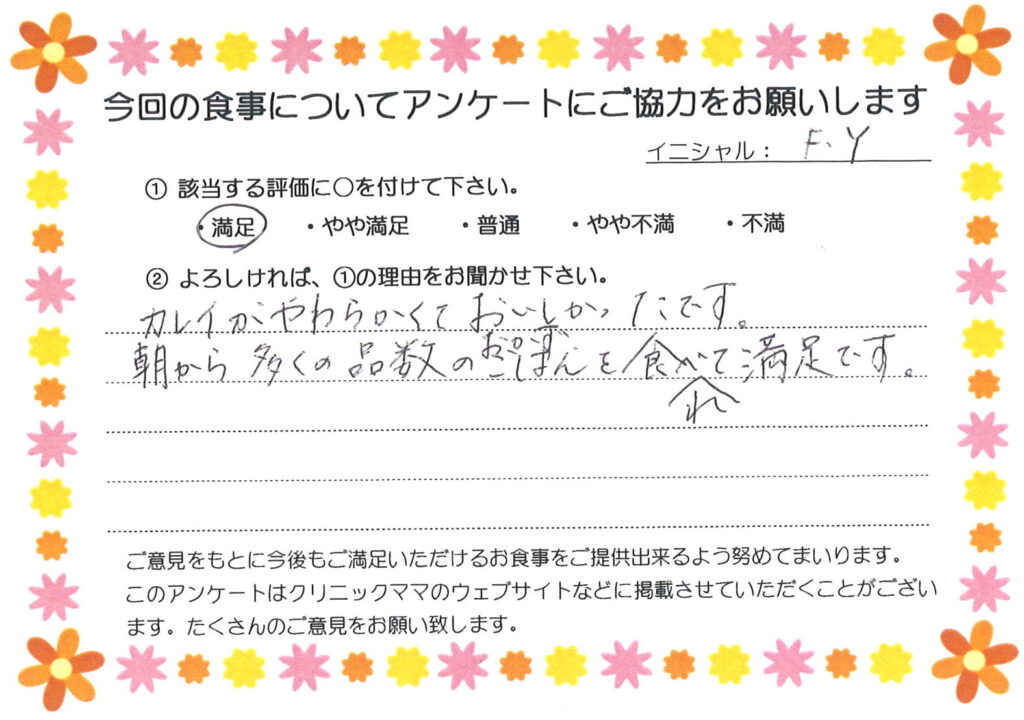 今回の食事についてアンケートにご協力をお願いします
イニシャル： F.Y
① 該当する評価に○を付けて下さい。
・満足 ・やや満足 ・普通 ・やや不満 ・不満
② よろしければ、①の理由をお聞かせ下さい。
カレイがやわらかくておいしかったです。
おかず
朝から多くの品数のごはんを食べて満足です。
れ
ご意見をもとに今後もご満足いただけるお食事をご提供出来るよう努めてまいります。
このアンケートはクリニックママのウェブサイトなどに掲載させていただくことがござい
ます。たくさんのご意見をお願い致します。